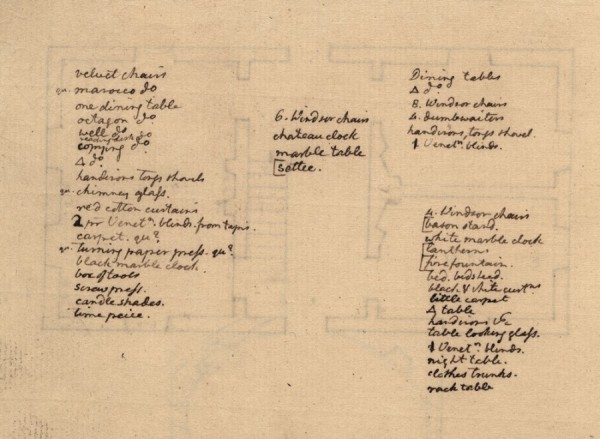 velvet chairs
qu. marocco do
one dining table
octagon do
well do
reading desk do
copying do.
Δ do.
handirons tongs shovels
qu. chimney glass.
red cotton curtains
2 pr Venetn. blinds. from tapis.
carpet. qu?
qu. turning paper press. qu?
black marble clock.
box of tools
screw press.
candle shades.
time peice.
6. Windsor chairs
chateau clock
marble table
[settee.
Dining tables
Δ do.
8. Windsor chairs
4. dumbwaiters
handirons tongs shovel.
1 Venetn. blinds.
4. Windsor chairs
[bason stand.
white marble clock
[lanthern
[fire fountain.
bed. bidstead.
black & white curtns
little carpet
Δ table
handirons &c
table looking glass.
1 Venetn. blinds.
night table.
clothes trunks.
rack table